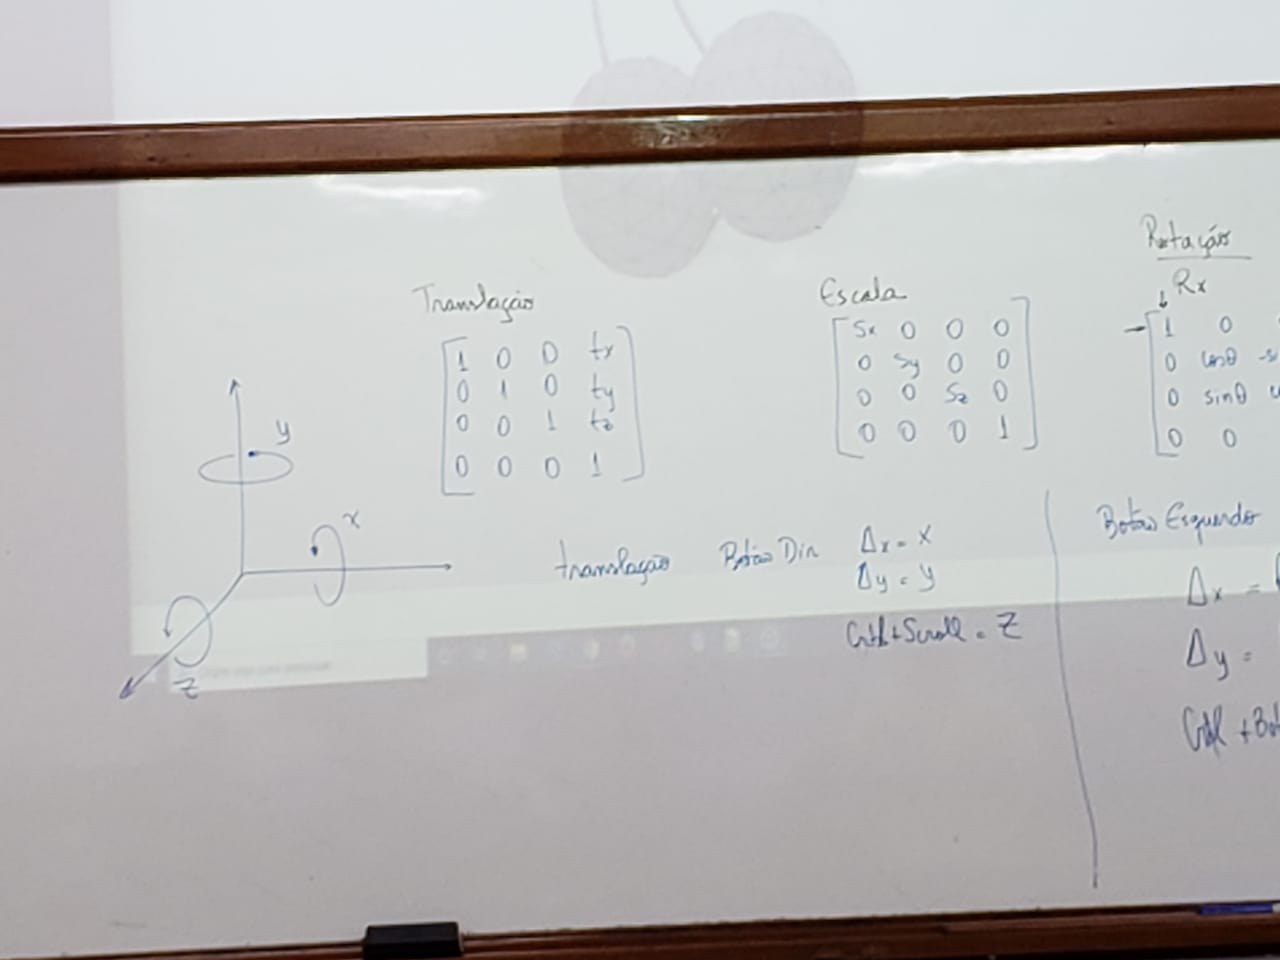 Translação
1 0 0 tx
0 1 0 ty
0 0 1 tz
0 0 0 1
Escala
Sx 0 0 0
0 Sy 0 0
0 0 Sz 0
0 0 0 1
Rotação
Rx
1 0
0 cosθ -si
0 sinθ
0 0
y
x
z
translação Botão Dir Δx = x
Δy = y
Ctrl+Scroll = Z
Botão Esquerdo
Δx =
Δy =
Ctrl + Bot